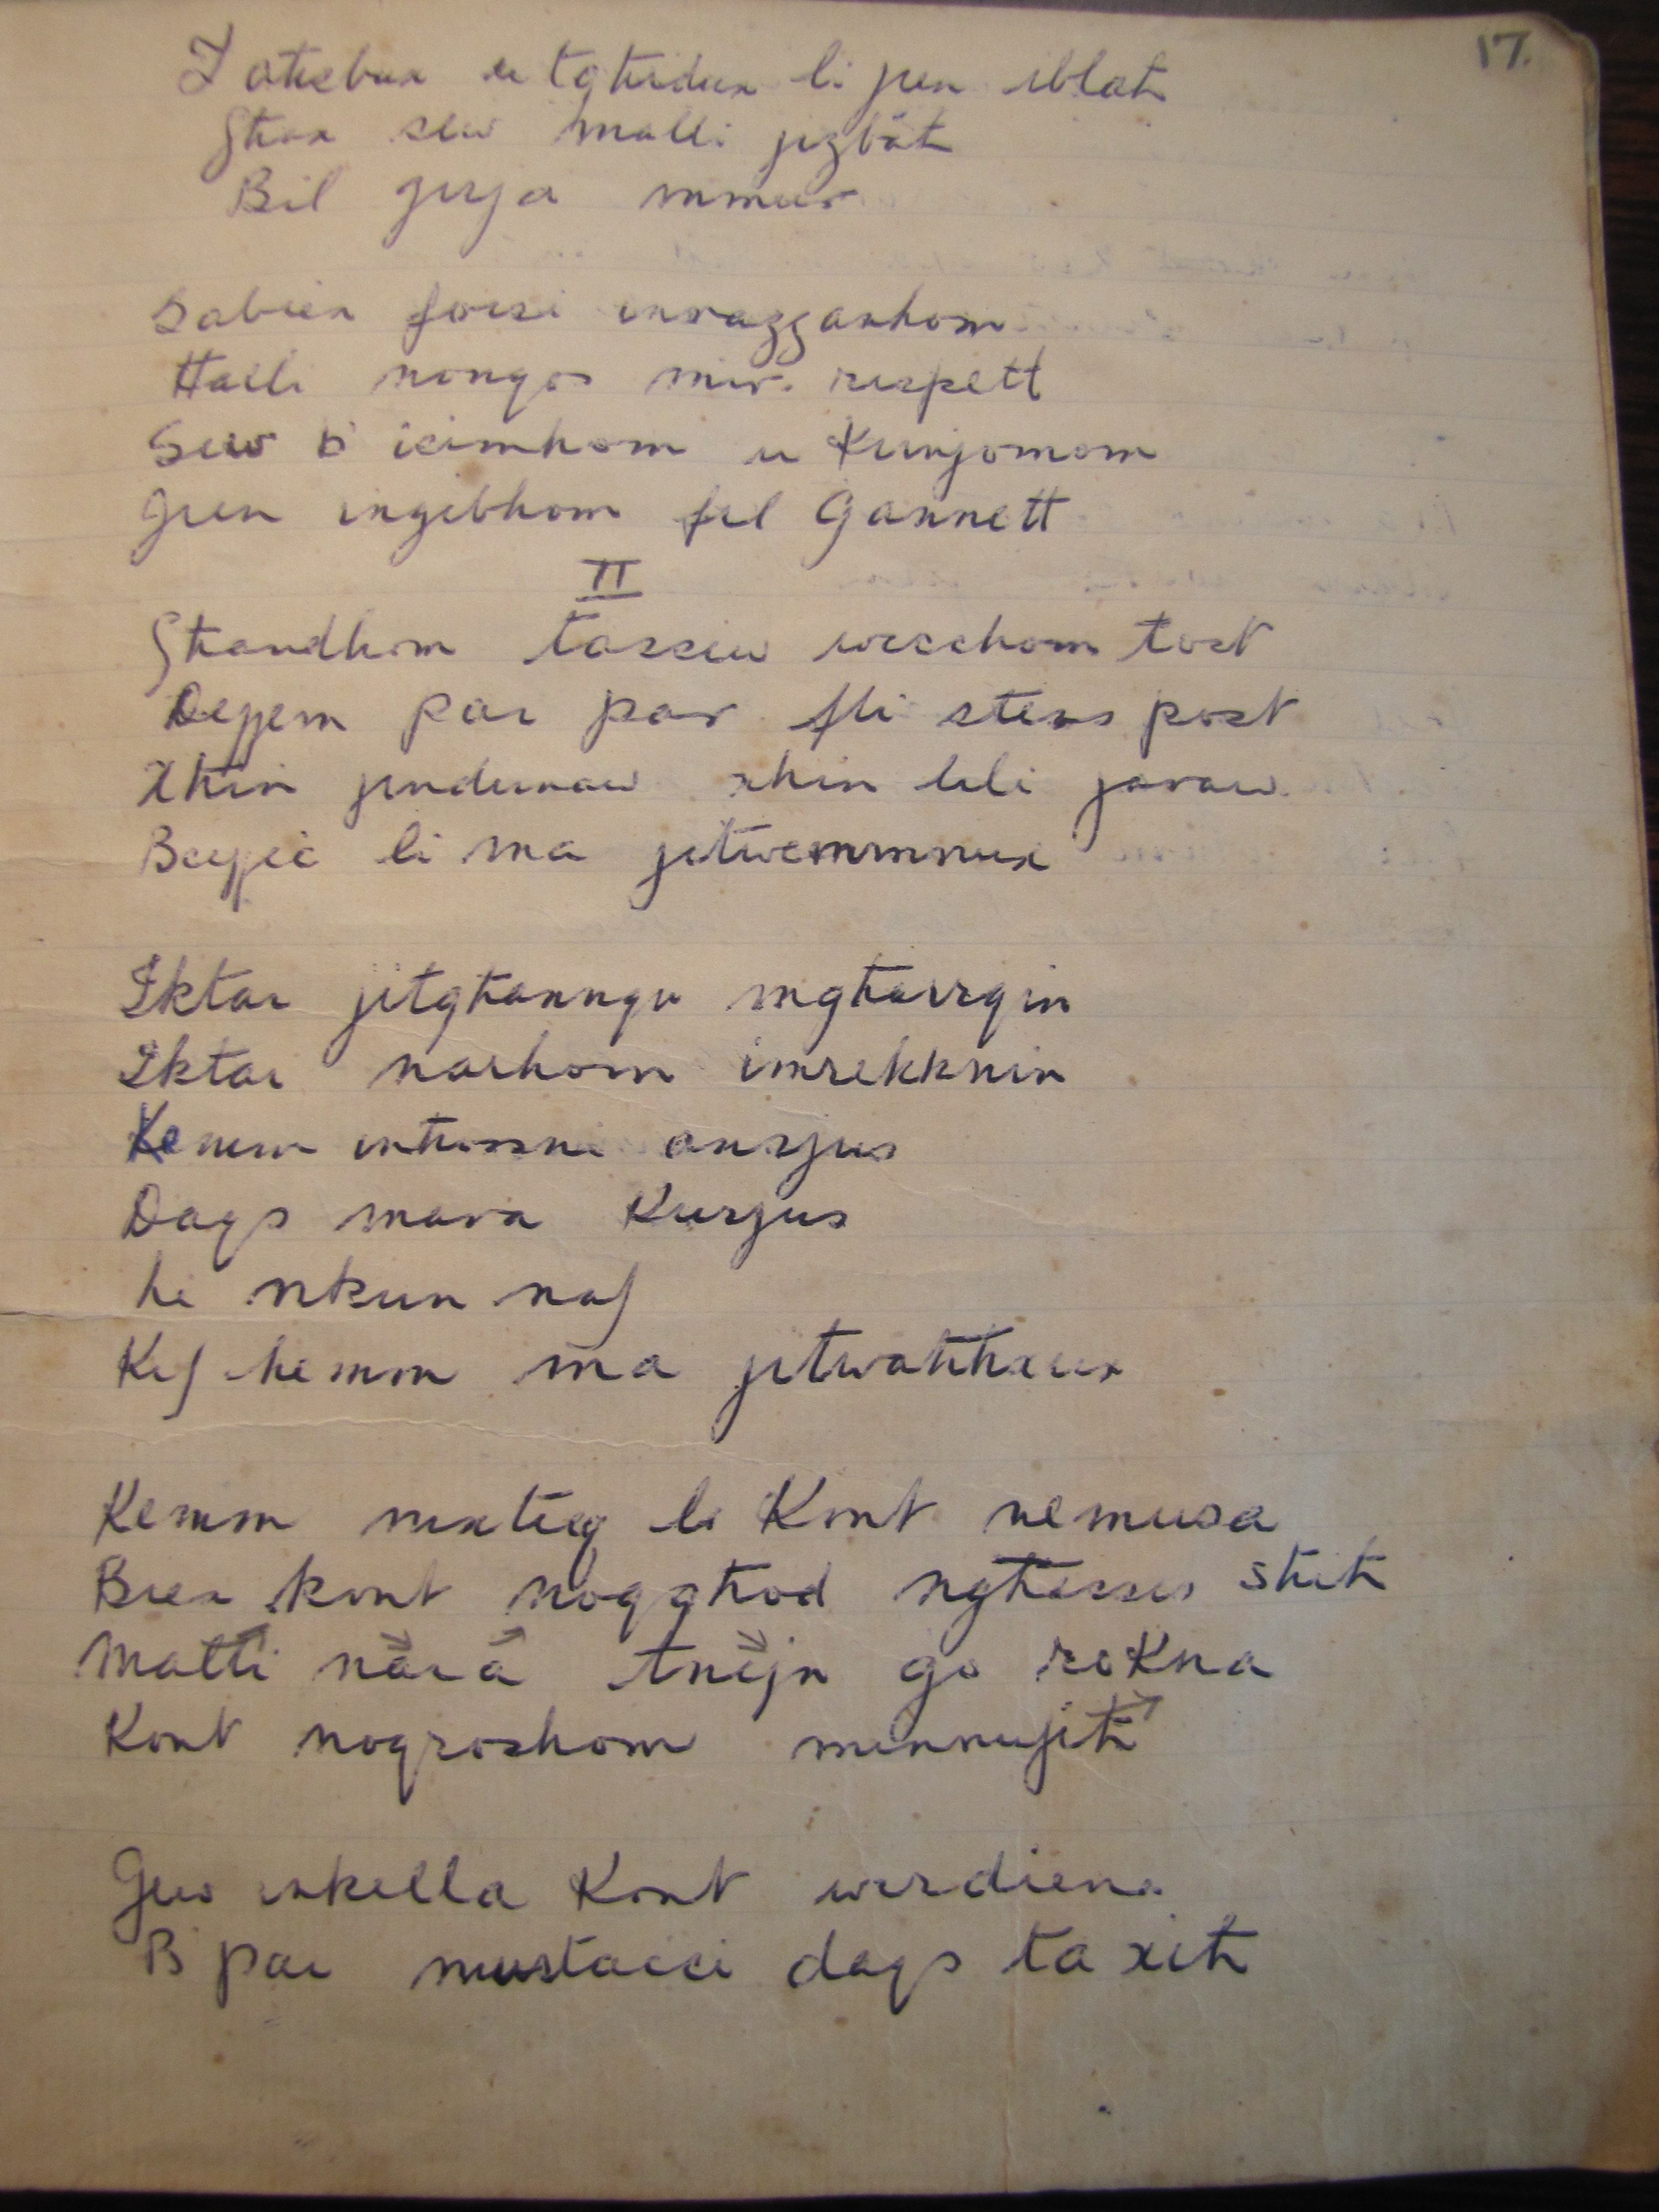 17.
Taħsbux u tgħidux li jien iblaħ
Għax sew malli jizbaħ
Bil ġirja mmur
Sabiex forsi inrazzanhom
Ħalli nongos mir. rispett
Sew b' icimhom u Kunjomom
Jien ingibhom fil Gannett
II
Għandhom tassew wicchom tost
Dejjem par par fli stess post
Xħin jinduraw xħin lili jaraw
Beżżiċ li ma jitwemmnux
Iktar jitgħannqu mgħarrqin
Iktar narhom imrekknin
Kemm inħossni ansjus
Daqs mara Kurjus
hi nkun naf
Kif hemm ma jitwaħħxux
Kemm nixtieq li Kont nemusa
Biex kont noqgħod ngħasses sħiħ
Malli nara tnejn go rokna
Kont noqroshom minnufiħ
Jew inkella Kont wirdiena
B par mustacci daqs ta xiħ